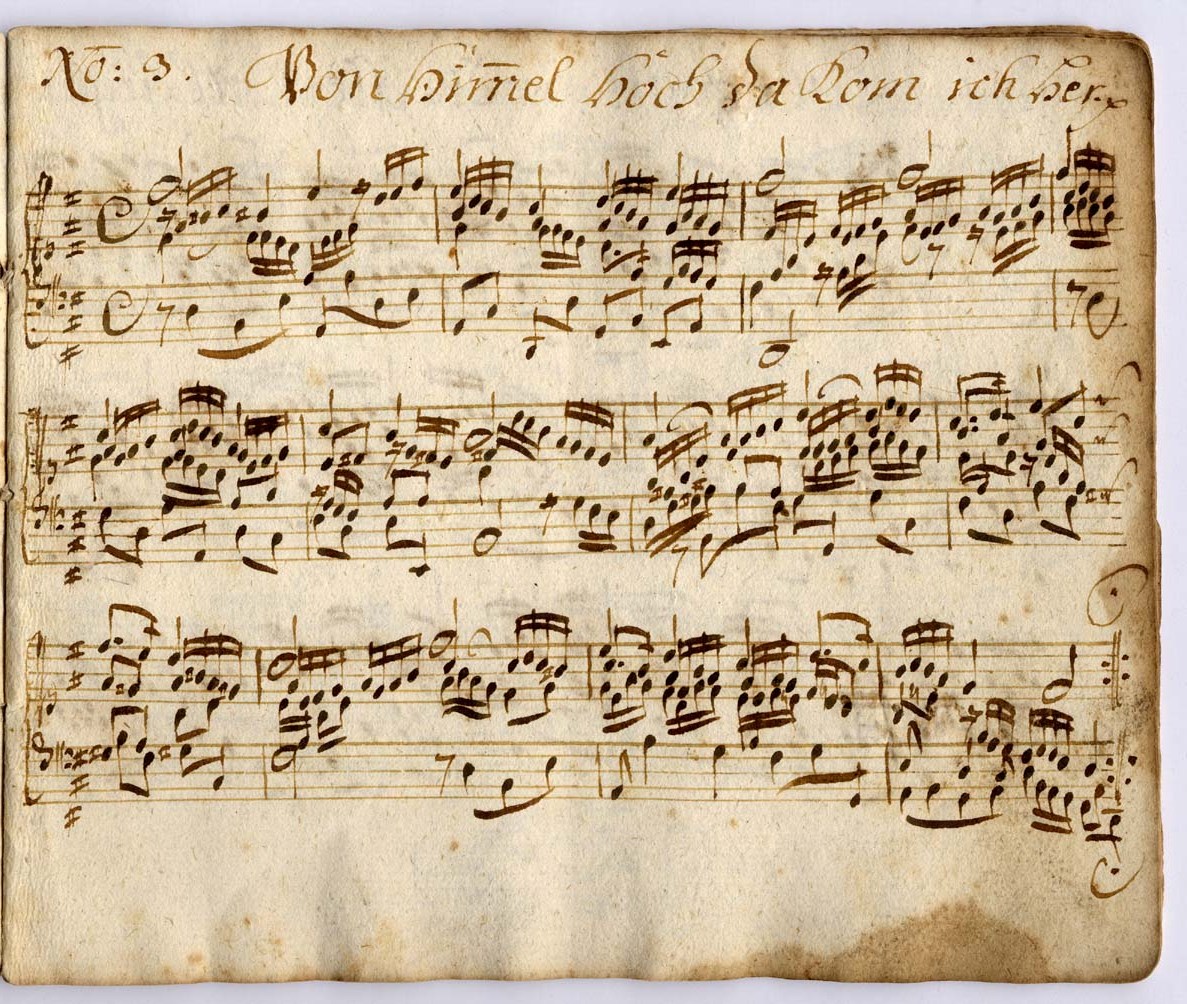 No: 3. Von Him̅el Hoch da Kom ich her.